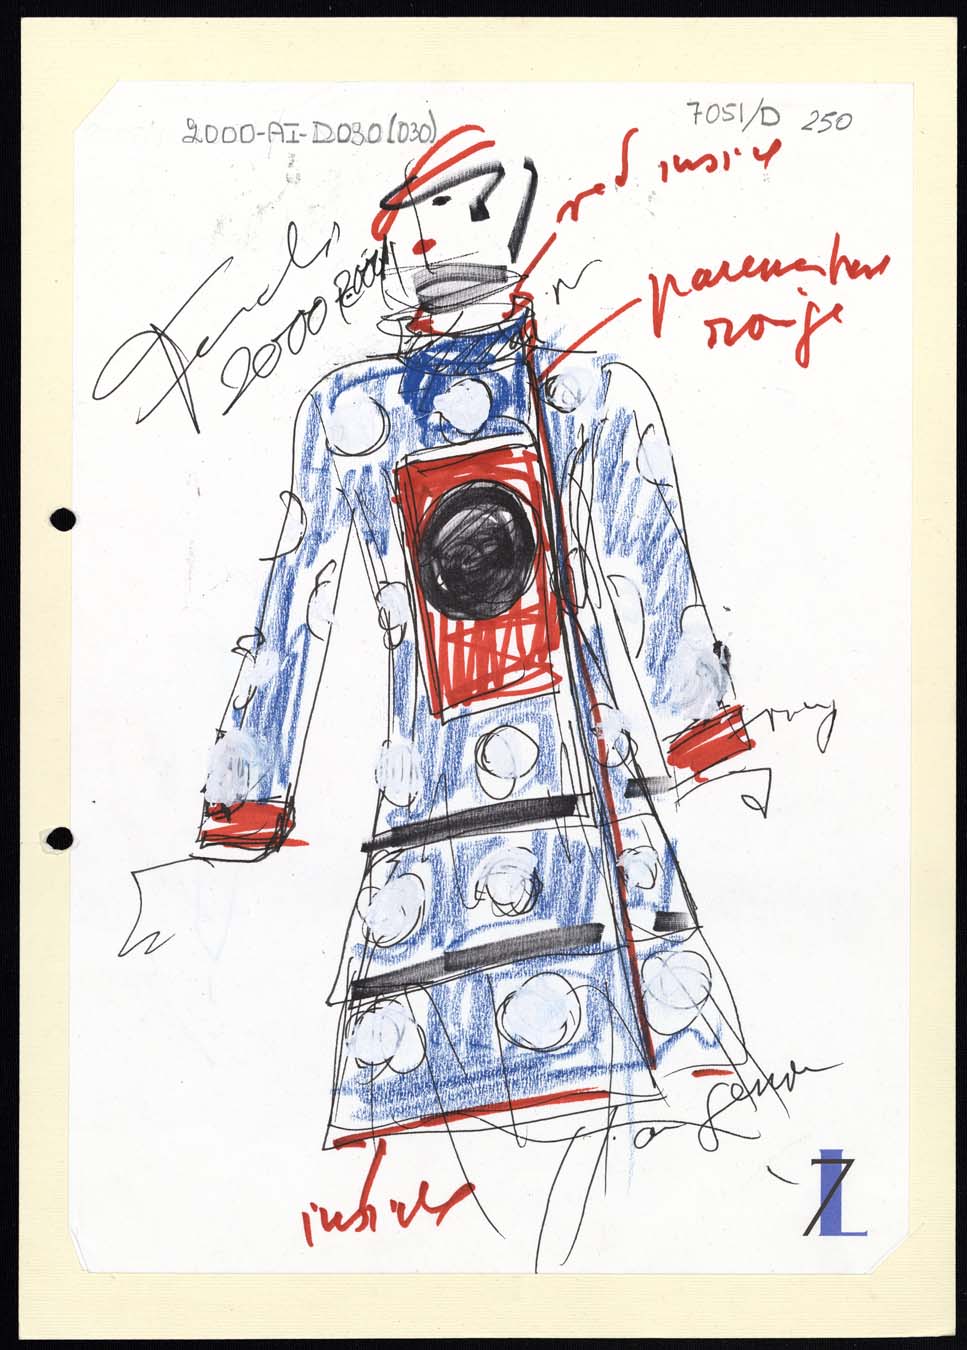 2000-AI-D030(030)
7051/D 250
red inside
Fendi
2000/2001
parementure
rouge
inside
7L